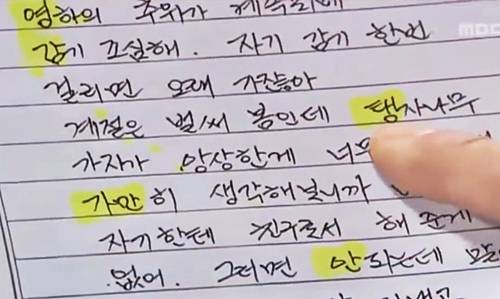 영하의 추위가
MBC
감기 조심해. 자기 감기 한번
걸리면 오래 가잖아
계절은 벌써 봄인데 탱자나무
가지가 앙상한게 너무
가만히 생각해보니까
자기한테 친구로서 해 준게
없어. 그러면 안 되는데